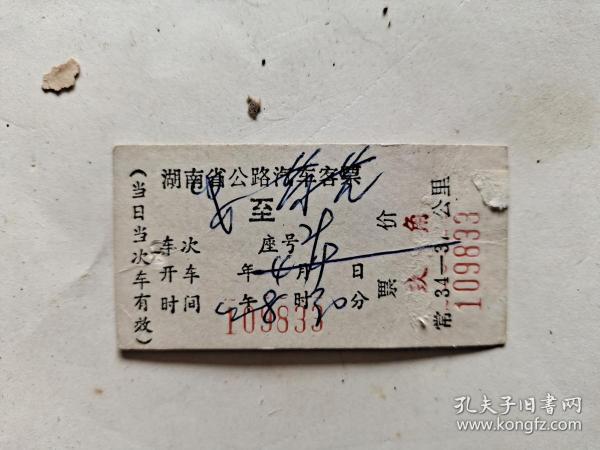 湖南省公路汽车客票
至
车次 座号
开车 年4月 日
时间 午8时30分
109833
(当日当次车有效)
票价
玖角
常34—3 公里
109833
孔夫子旧书网
www.kongfz.com